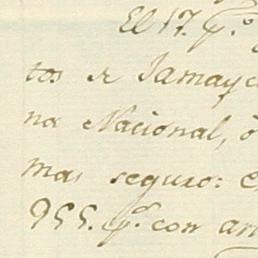 El 17. q.e
tos de Jamayc
na Nacional, ó
mas seguro: e
955. q.e con an